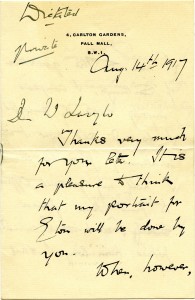 Dictated
Private
4, CARLTON GARDENS,
PALL MALL,
S.W.1.
Aug. 14th 1917
Thanks very much
for your letter. It is
a pleasure to think
that my portrait for
Eton will be done by
you.
When, however,